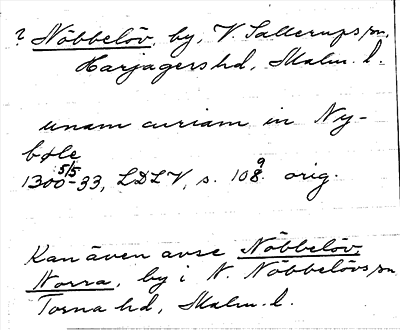 ? Nöbbelöv, by, V. Sallerups sn,
Harjagers hd, Malm. l.
unam curiam in Ny-
bøle
1300 5/5 -33, LDLV, s. 108 9 orig.
Kan även avse Nöbbelöv,
Norra, by i N. Nöbbelövs sn
Torna hd, Malm. l.